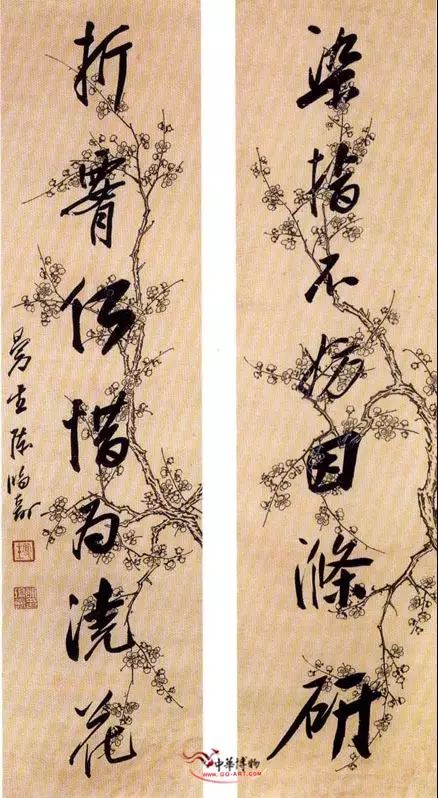 染指不妨因滌研
折何惜为澆花
曼生陳鴻壽
中華博物
WWW.GG-ART.COM